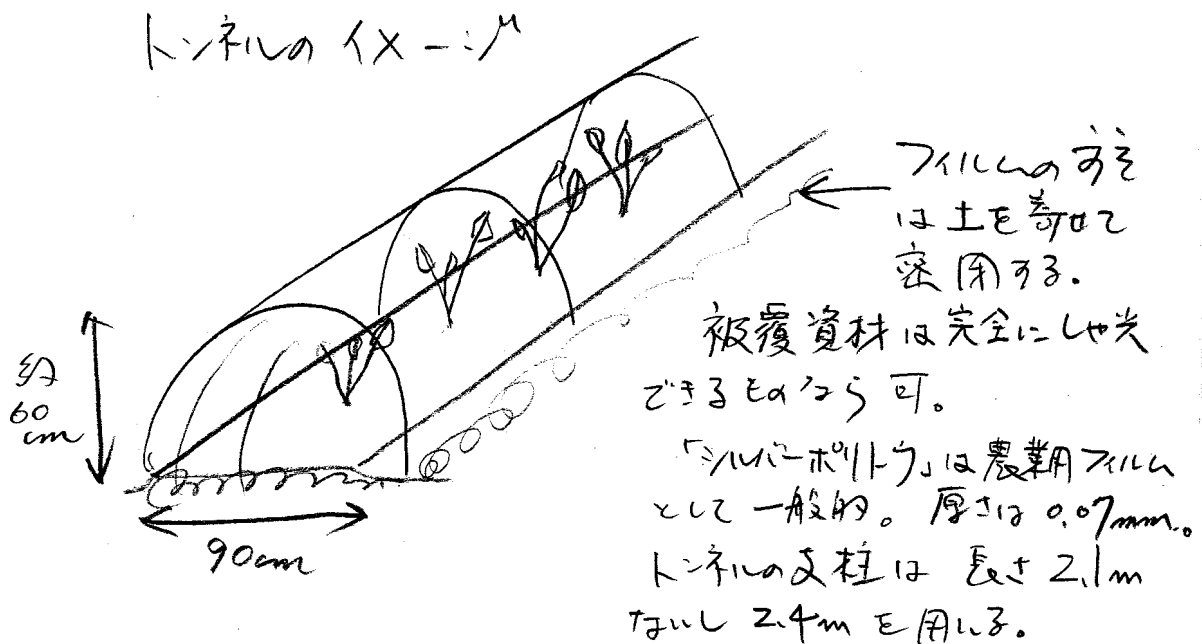 トンネルのイメージ
フィルムのすそ
は土を寄せて
密閉する.
約
60
cm
90cm
被覆資材は完全にしゃ光
できるものなら可。
「シルバーポリトウ」は農業用フィルム
として一般的。厚さは0.07mm。
トンネルの支柱は長さ2.1m
ないし2.4mを用いる。